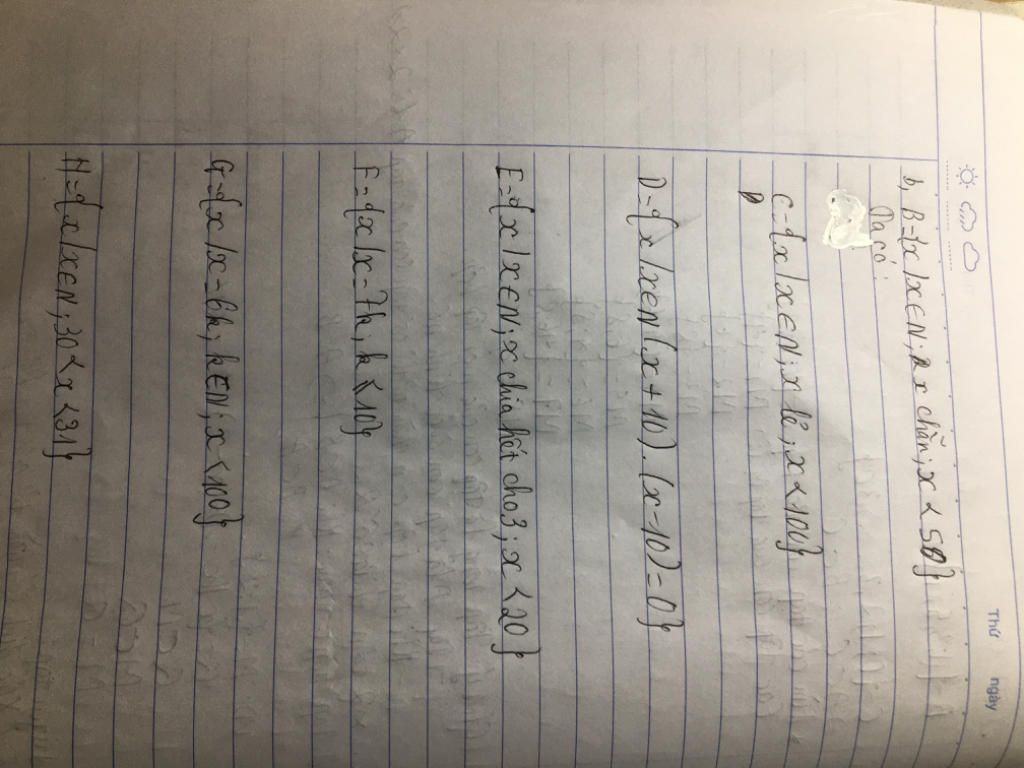 Thứ ngày
b, B={x/x∈N; x chẵn; x < 50}
Ta có:
C={x/x∈N; x lẻ; x<100}
D
D={x/x∈N(x+10).(x-10)=0}
E={x/x∈N; x chia hết cho3; x<20}
F={x/x=7k, k<10}
G={x/x=6k, k∈N; x<100}
H={x/x∈N; 30<x<31}